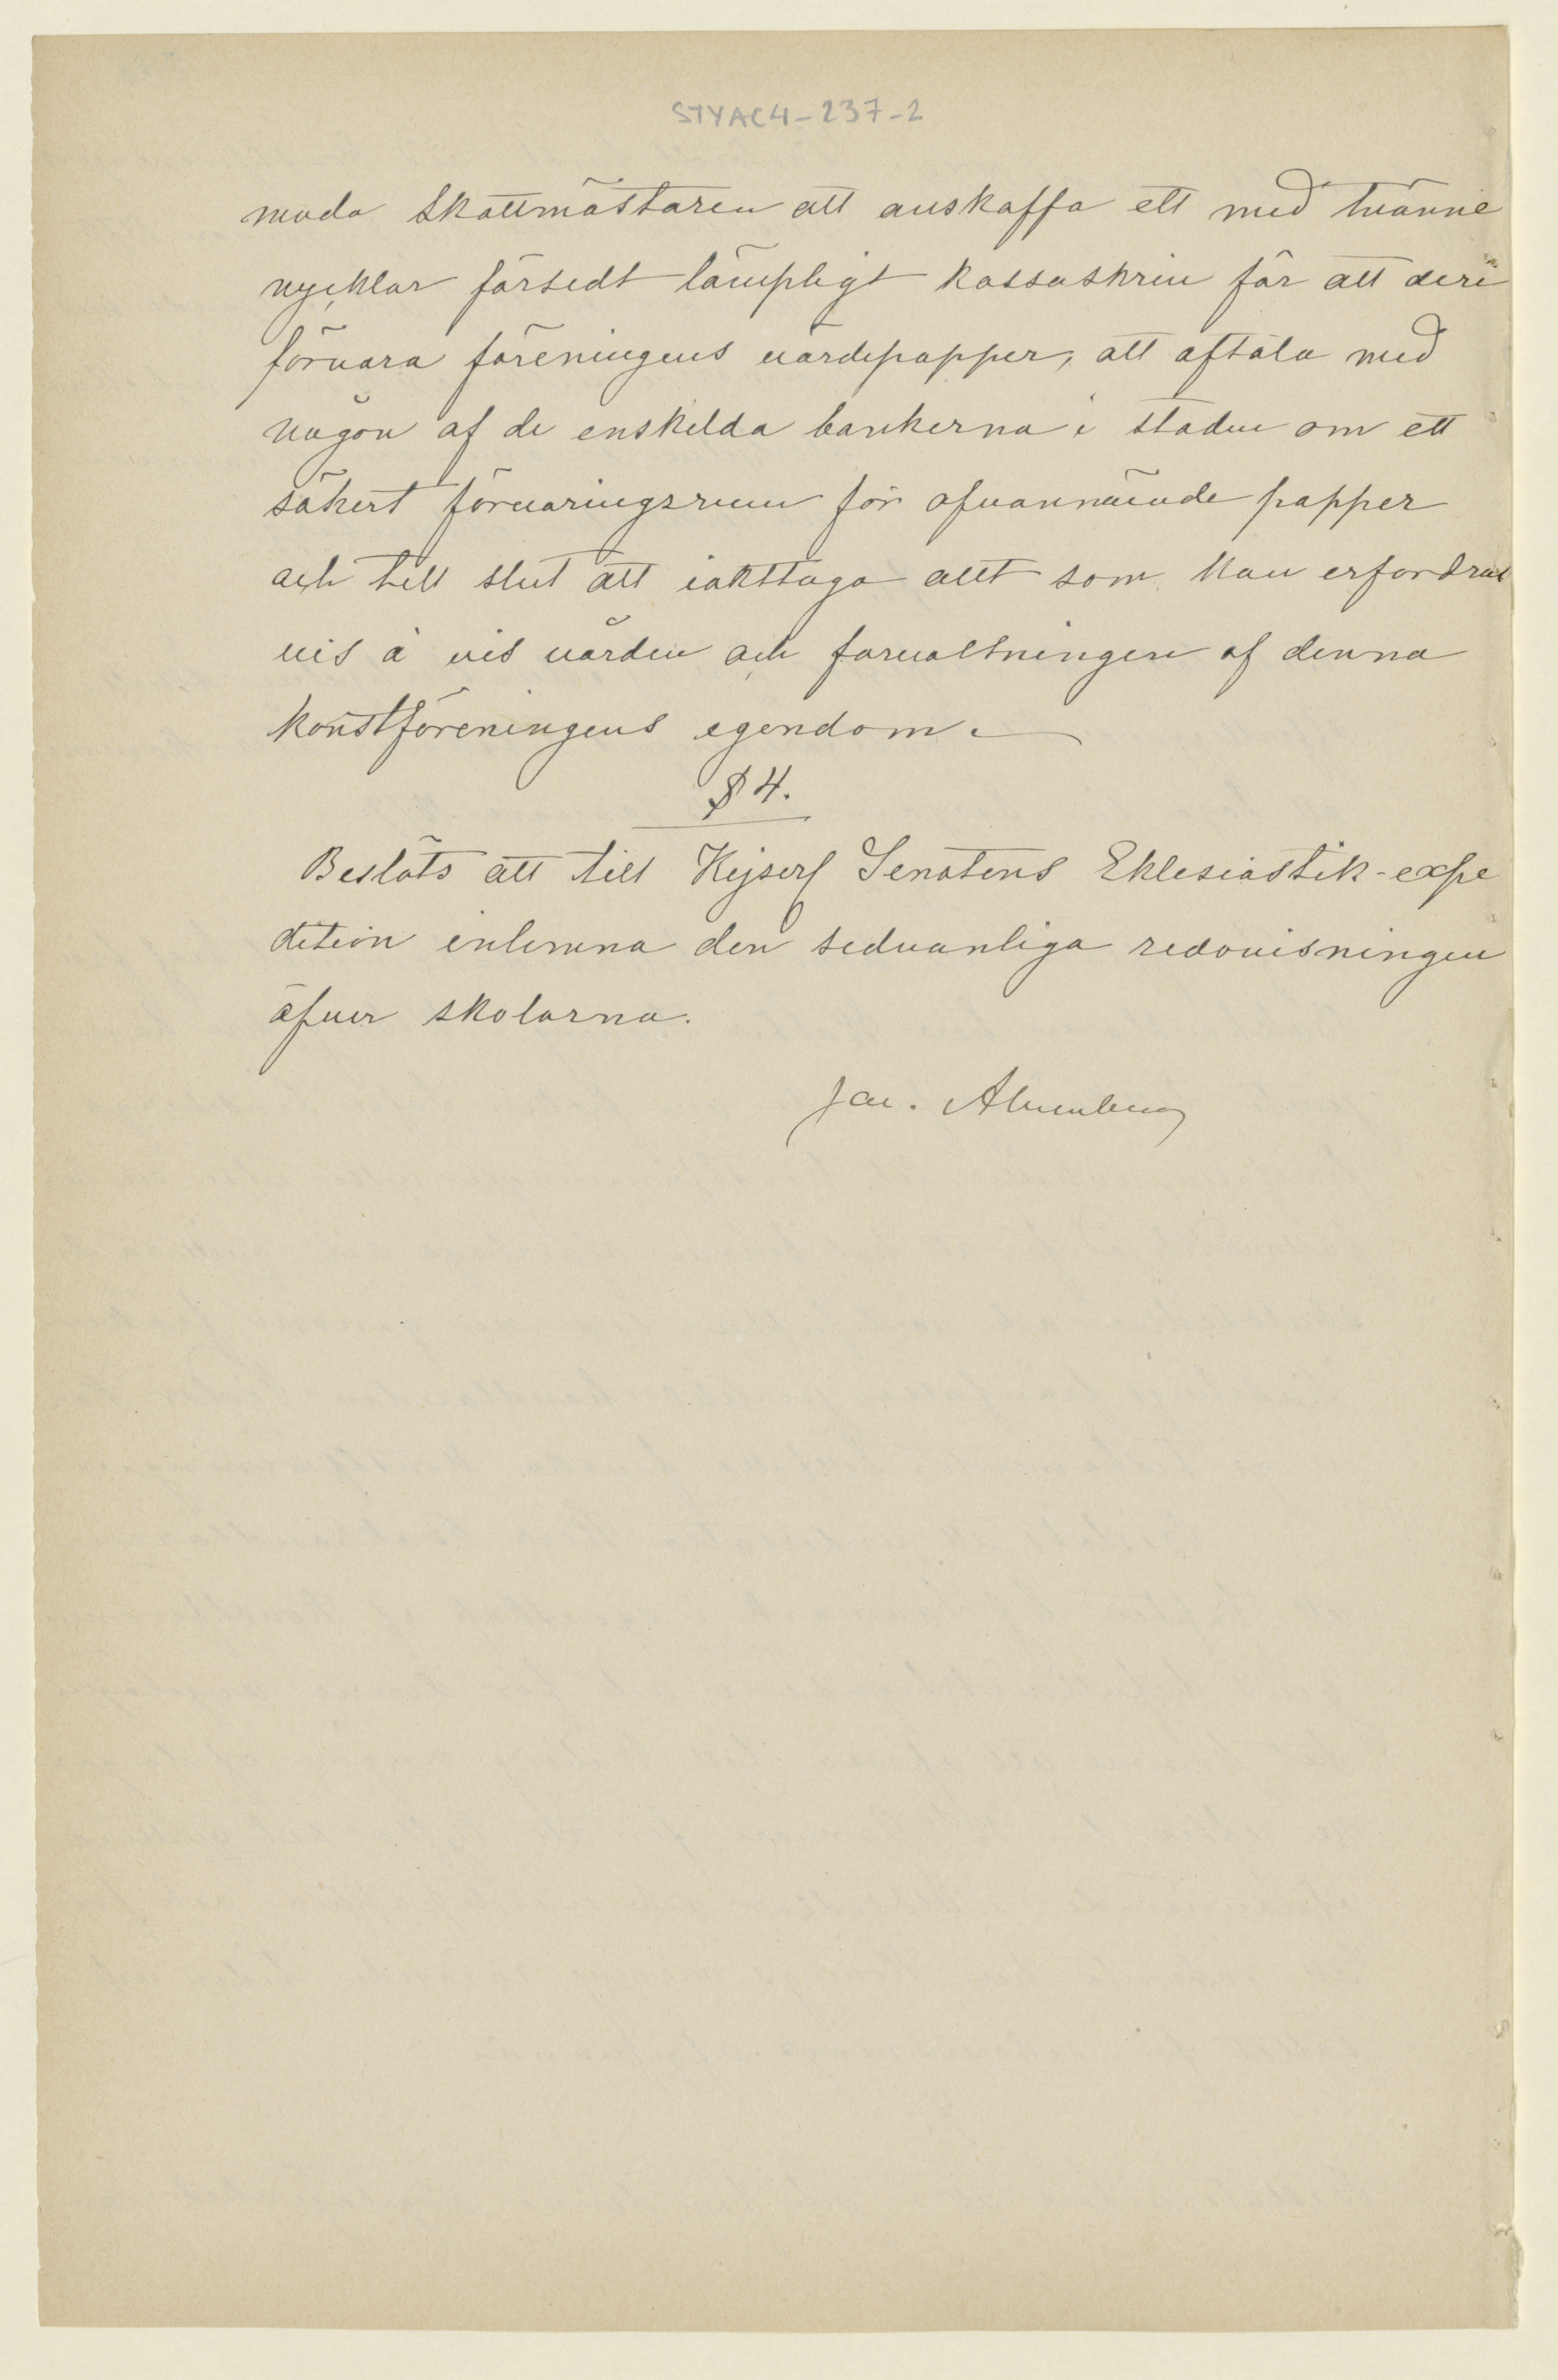 STYAC4-237-2
moda Skattmästaren att anskaffa ett med tvänne
nycklar försedt lämpligt kassaskrin för att deri
förvara föreningens värdepapper, att aftala med
någon af de enskilda bankerna i staden om ett
säkert förvaringsrum för ofvannämnde papper
och till slut att iakttaga allt som kan erfordras
vis à vis vården och förvaltningen af denna
konstföreningens egendom.
§ 4.
Beslöts att till Kejserl Senatens Eklesiastik-expe
dition inlemna den sedvanliga redovisningen
öfver skolorna.
Jac. Ahrenberg